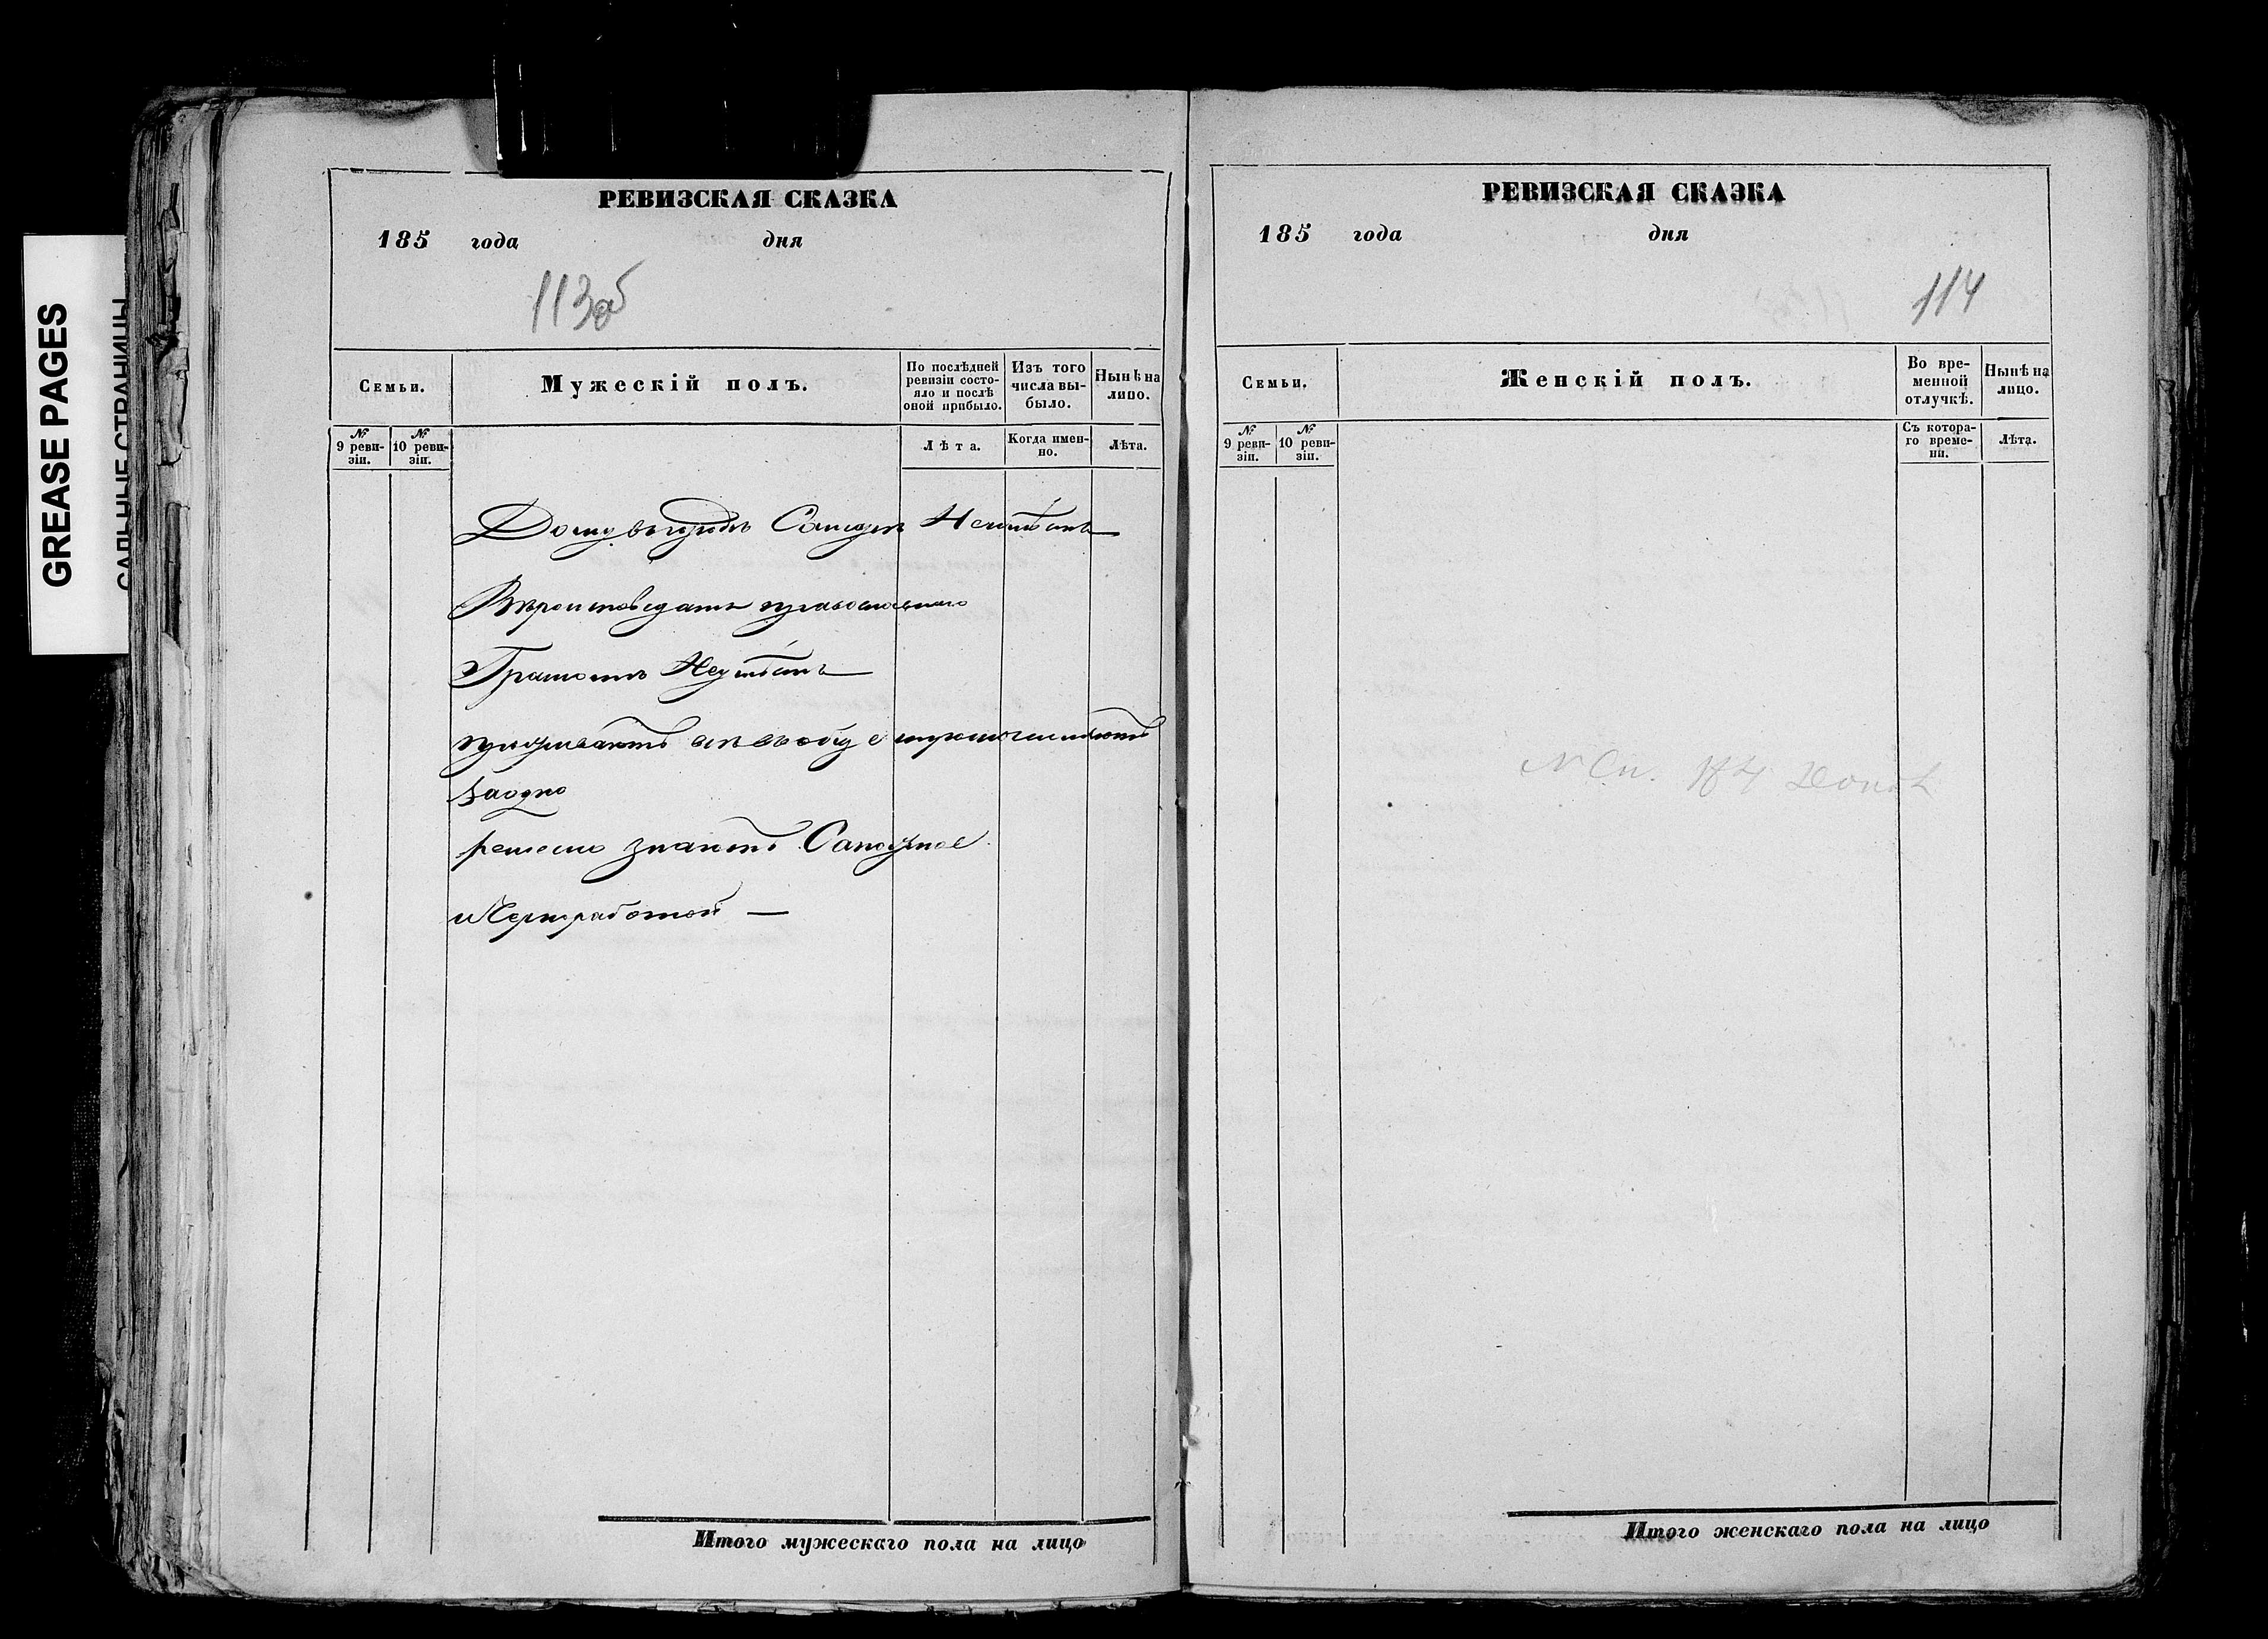 GREASE PAGES
САЛЬНЫЕ СТРАНИЦЫ
РЕВИЗСКАЯ СКАЗКА
185 года дня
113об
Семьи.
Мужескій полъ.
По послѣдней ревизіи состояло и послѣ оной прибыло.
Изъ того числа выбыло.
Нынѣ на лицо.
№ 9 ревизіи.
№ 10 ревизіи.
Лѣта.
Когда именно.
Лѣта.
Дому въ городѣ
Вѣроисповеданія православнаго
Грамотѣ Неумѣютъ
заодно
ремесло знаютъ Сапожное
и Чернработой —
Итого мужескаго пола на лицо
РЕВИЗСКАЯ СКАЗКА
185 года дня
114
Семьи.
Женскій полъ.
Во временной отлучкѣ.
Нынѣ на лицо.
№ 9 ревизіи.
№ 10 ревизіи.
Съ котораго времени.
Лѣта.
Итого женскаго пола на лицо